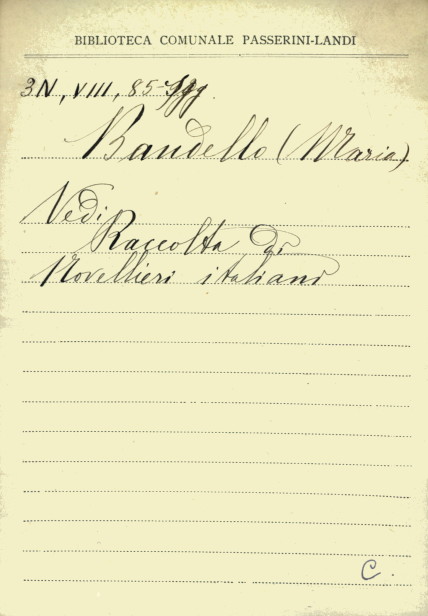 BIBLIOTECA COMUNALE PASSERINI-LANDI
3N, VIII, 85-sgg.
Bandello (Maria)
Vedi
Raccolta di
Novellieri italiani
C.